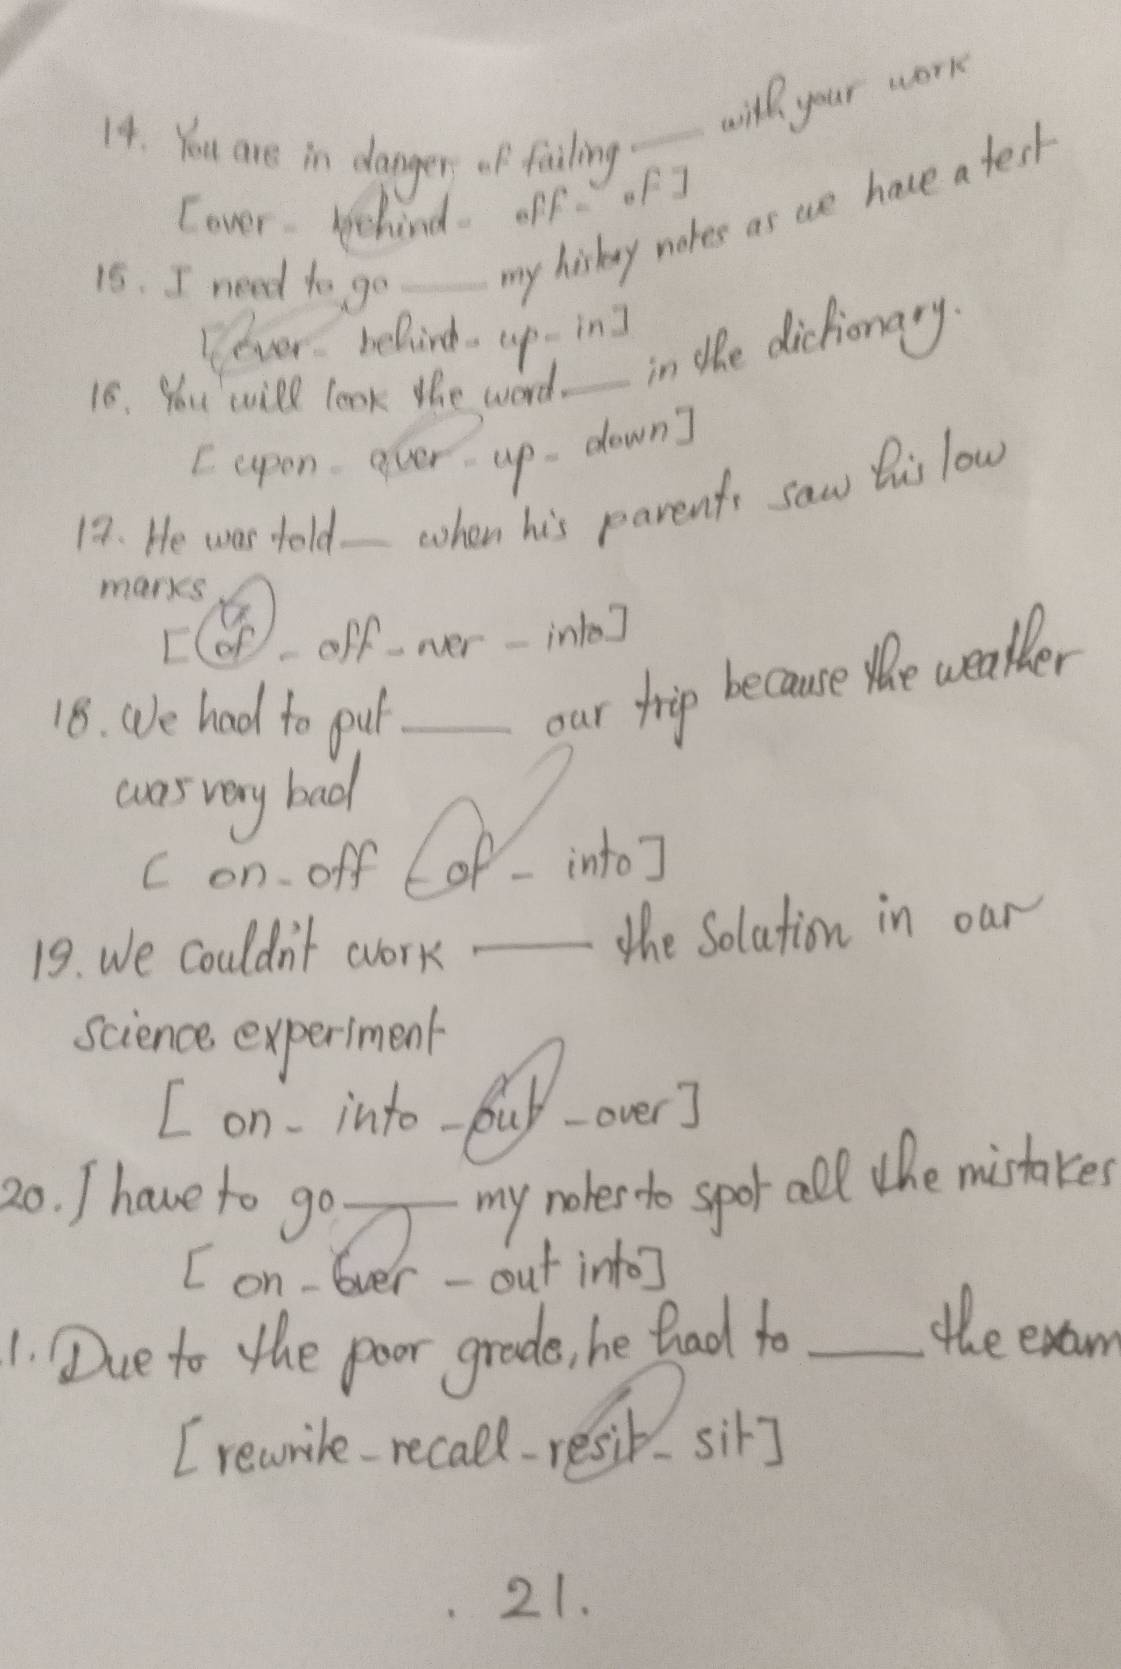 14. You are in danger of failing ___ with your work
[over - behind - off - of]
15. I need to go ___ my history notes as we have a test
[over - behind - up - in]
16. You will look the word ___ in the dictionary.
[upon - over - up - down]
17. He was told ___ when his parents saw his low
marks
[of - off - over - into]
18. We had to put ___ our trip because the weather
was very bad
[on - off - of - into]
19. We couldn't work ___ the Solution in our
science experiment
[on - into - out - over]
20. I have to go ___ my notes to spot all the mistakes
[on - over - out into]
1. Due to the poor grade, he had to ___ the exam
[rewrite - recall - resit - sit]
. 21.